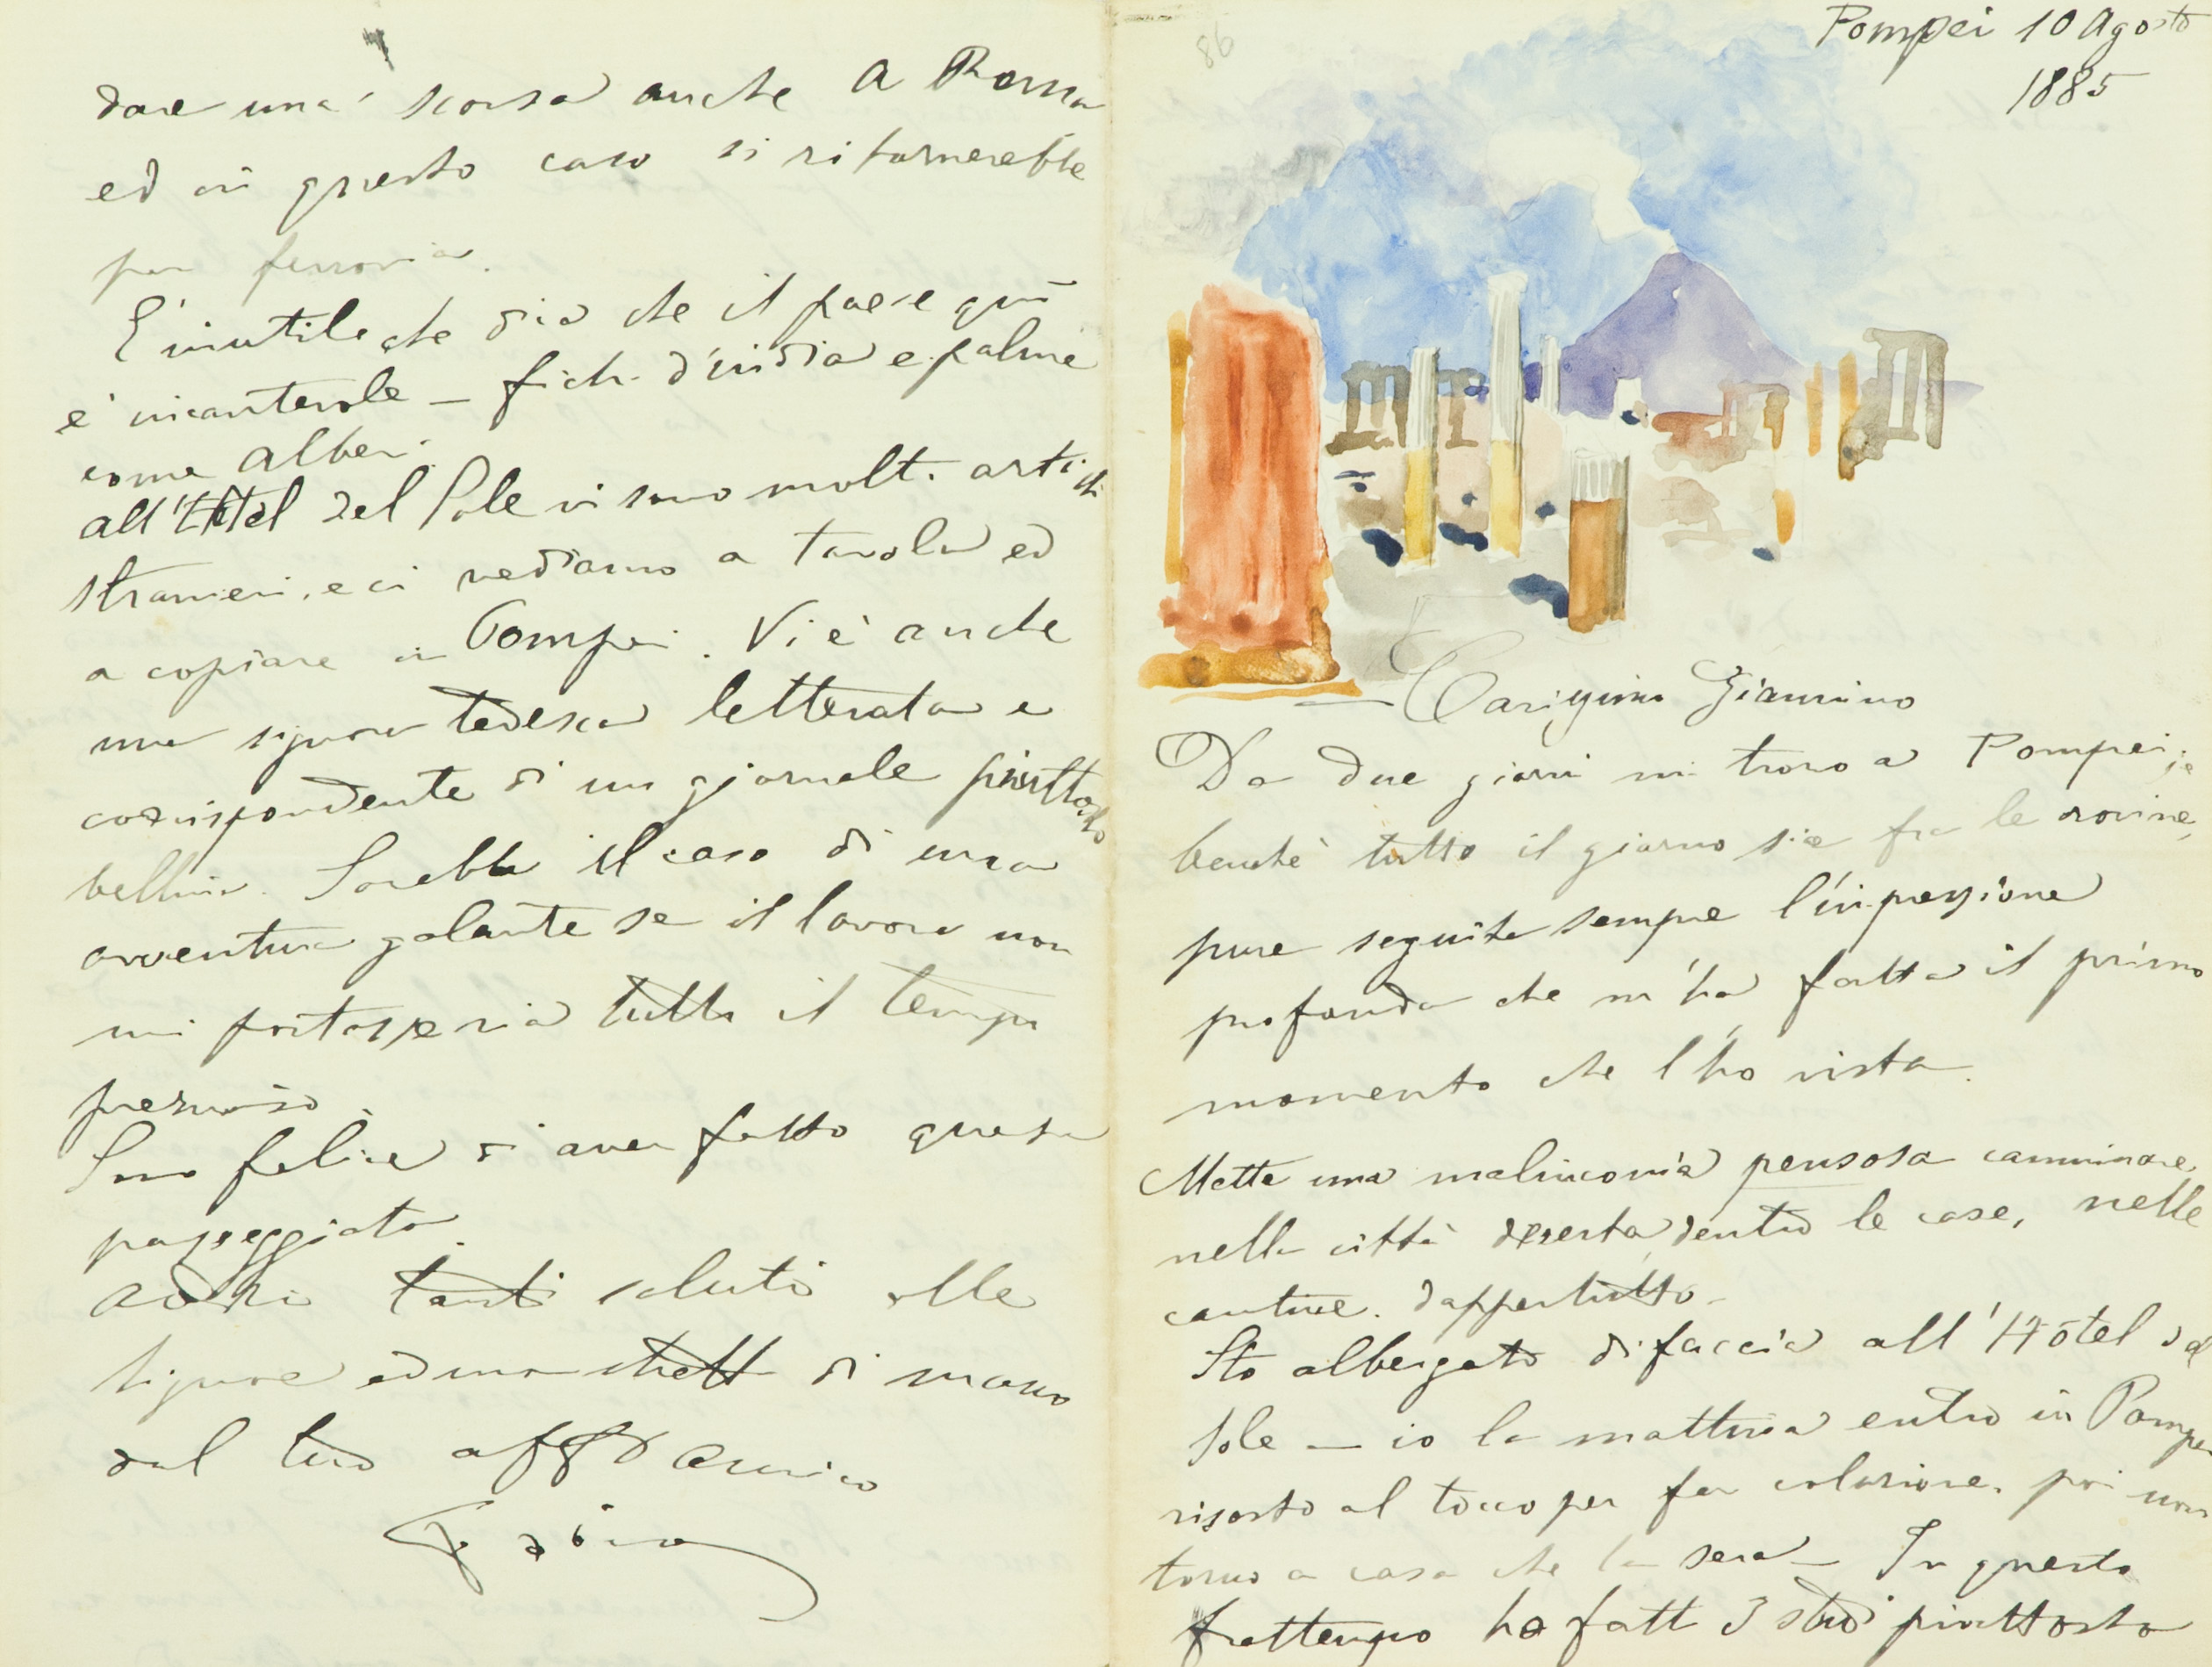 86
Pompei 10 Agosto
1885
Carissimo Giannino
Da due giorni mi trovo a Pompei; e
benchè tutto il giorno sia fra le rovine,
pure seguita sempre l'impressione
profonda che m'ha fatta il primo
momento che l'ho vista.
Mette una malinconia pensosa camminare
nella città deserta, dentro le case, nelle
cantine. dappertutto.
Sto albergato di faccia all'Hôtel del
Sole — io la mattina entro in Pompei
risorto al tocco per far colazione, poi non
torno a casa che la sera — In questo
frattempo ho fatt 3 studi piuttosto
dare una scorsa anche a Roma
ed in questo caso si ritornerebbe
per ferrovia.
E' inutile che dica che il paese quì
è incantevole — fichi d'india e palme
come alberi.
all'Hôtel del Sole vi sono molti artisti
stranieri, e ci vediamo a tavola ed
a copiare in Pompei. Vi è anche
una signora tedesca letterata e
corrispondente di un giornale piuttosto
bellina. Sarebbe il caso di una
avventura galante se il lavoro non
mi portasse via tutto il tempo
prezioso.
Sono felice di aver fatto questa
passeggiata.
Addio tanti saluti alle
Signore ed una stretta di mano
dal tuo affmo Amico